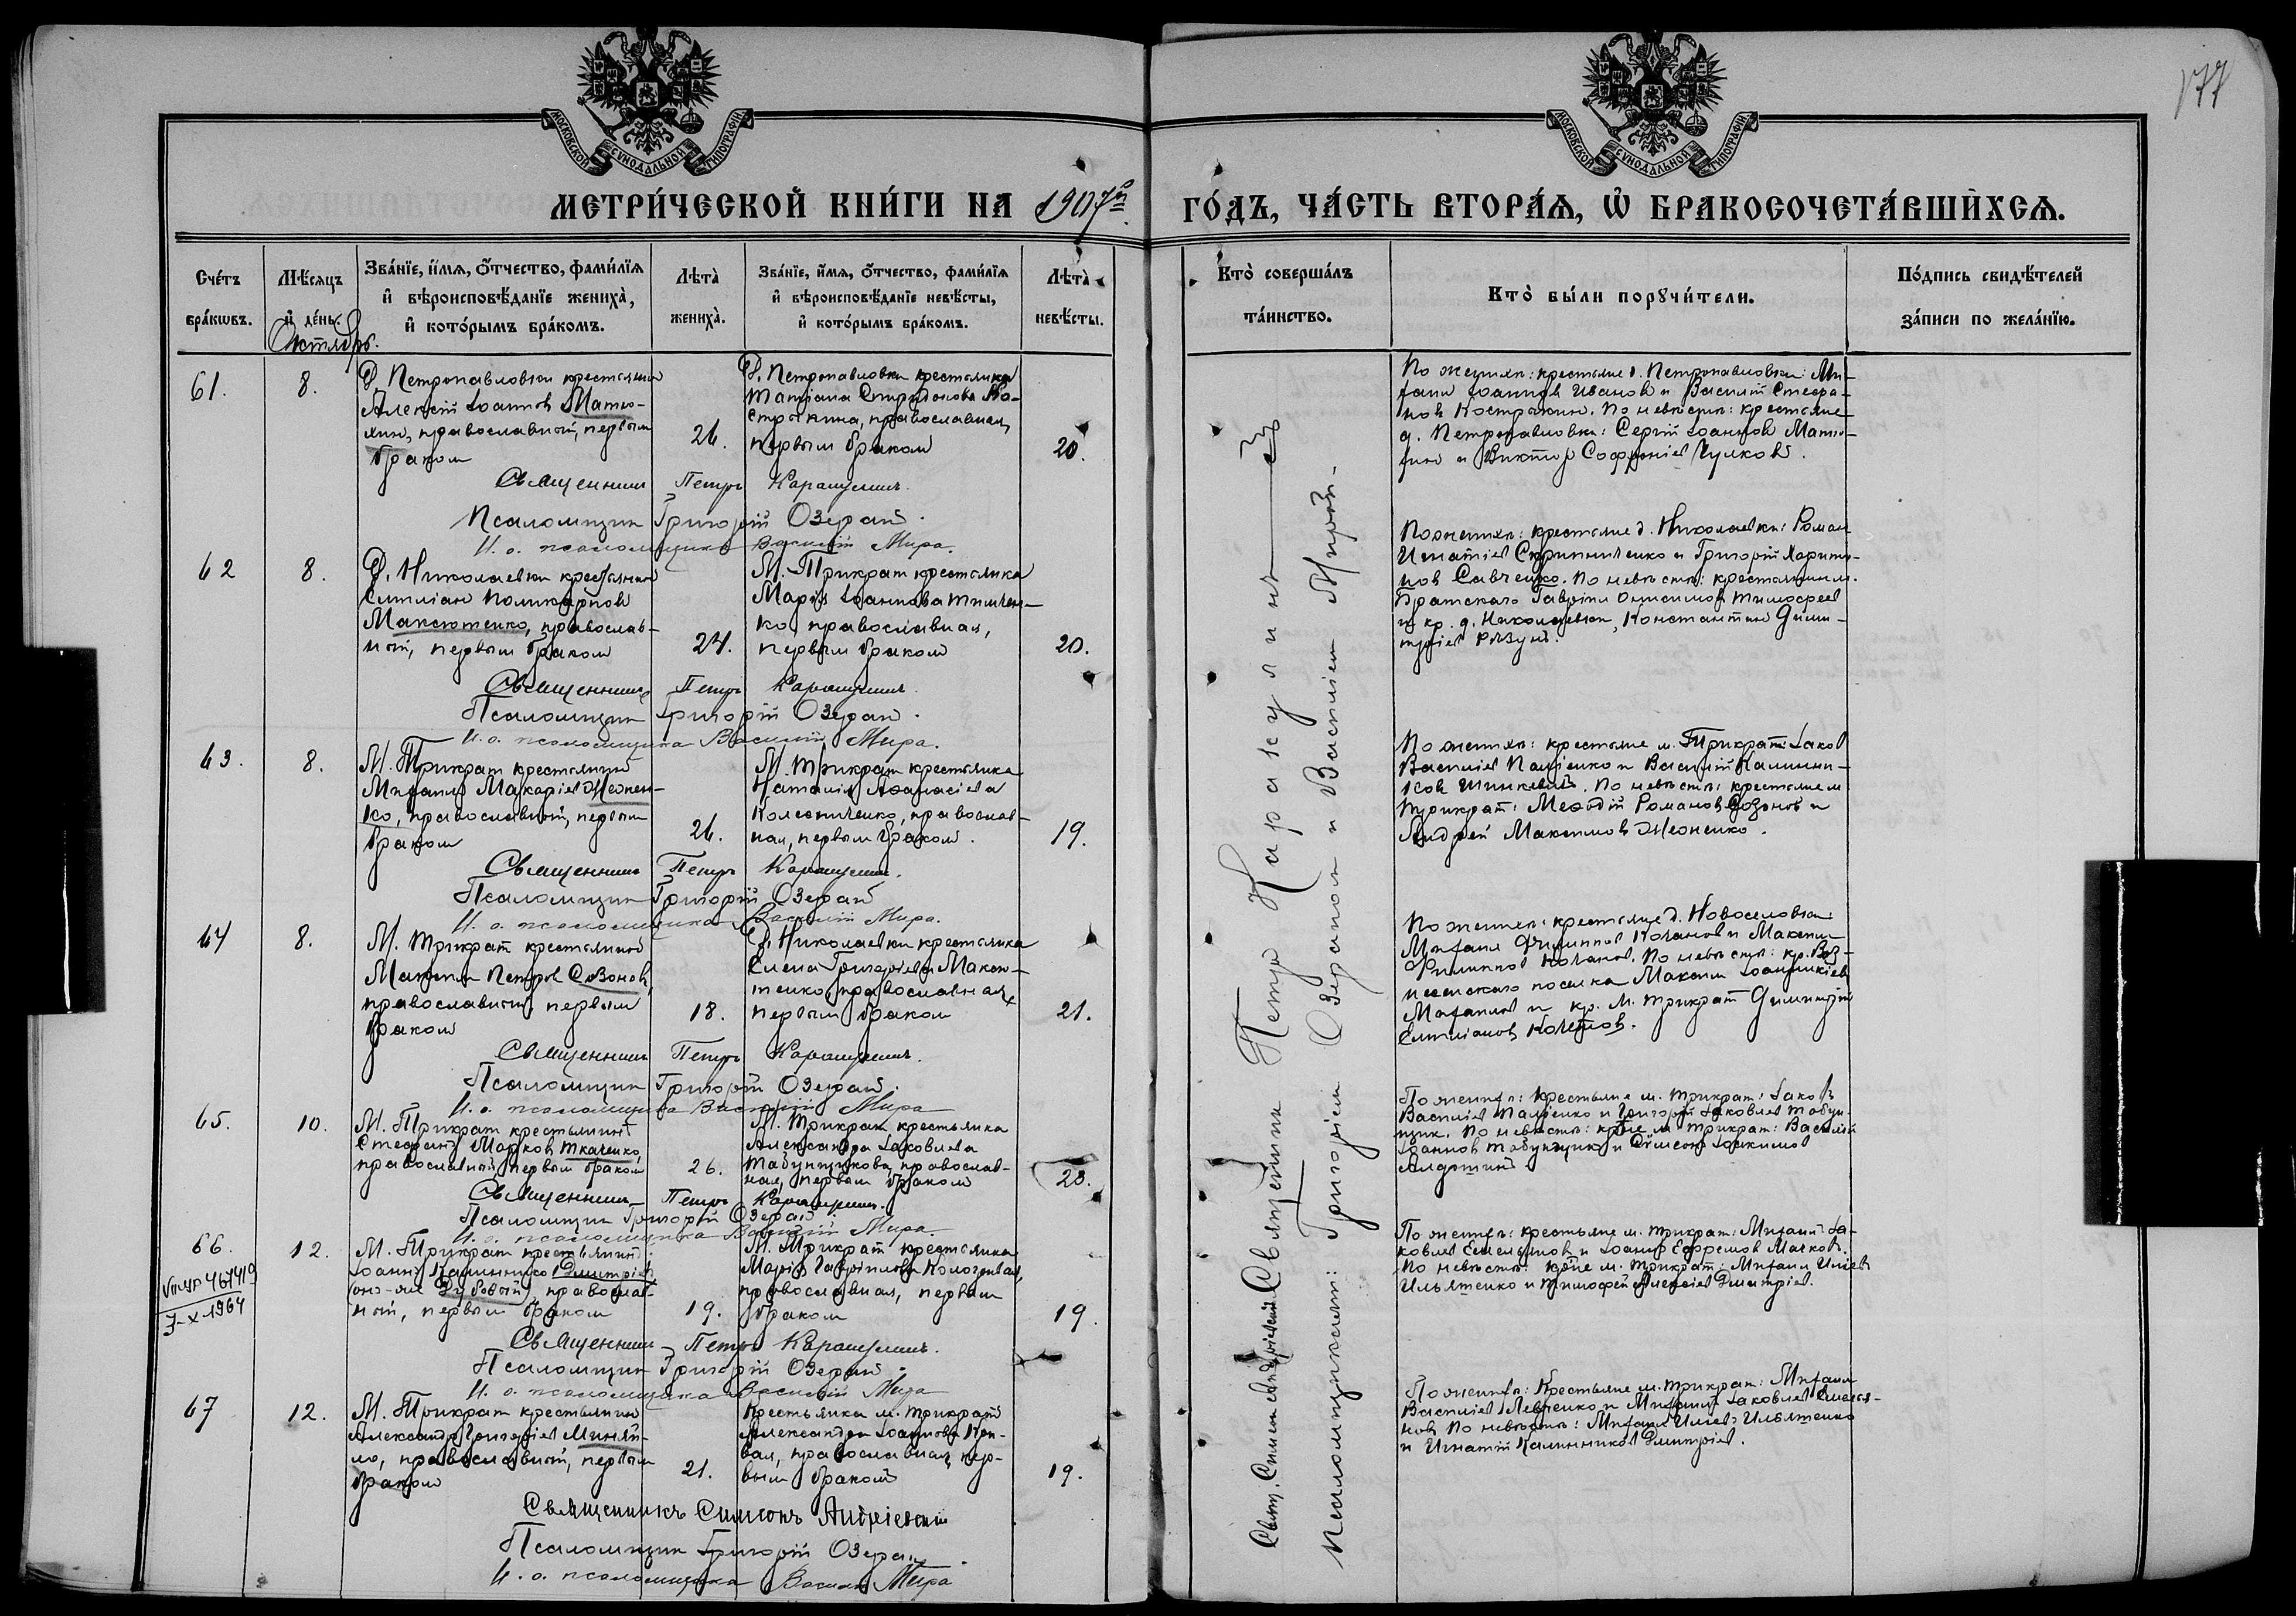 177
МОСКОВСКОЙ СѴНОДАЛЬНОЙ ТИПОГРАФІИ
МОСКОВСКОЙ СѴНОДАЛЬНОЙ ТИПОГРАФІИ
МЕТРИ́ЧЕСКОЙ КНИ́ГИ НА 1907й ГО́ДЪ, ЧА́СТЬ ВТОРА́Ѧ, Ѡ҆ БРАКОСОЧЕТА́ВШИХСѦ.
Сче́тъ бра́кѡвъ.
Мѣ́сяцъ и҆ де́нь.
Октябрь.
Зва́нїе, и҆́мѧ, ѻ҆́тчество, фами́лїѧ
и҆ вѣроисповѣ́данїе жениха̀,
и҆ кото́рымъ бра́комъ.
Лѣта̀ жениха̀.
Зва́нїе, и҆́мѧ, ѻ҆́тчество, фами́лїѧ
и҆ вѣроисповѣ́данїе невѣ́сты,
и҆ кото́рымъ бра́комъ.
Лѣта̀ невѣ́сты.
Кто̀ соверша́лъ та́инство.
Кто̀ бы́ли порꙋчи́тели.
По́дпись свидѣ́телей за́писи по жела́нїю.
61.
8.
Д. Петропавловки крестьянин
Алексій Іоаннов Матю-
хин, православный, первым
браком
26.
Д. Петропавловки крестьянка
Татіана Спиридонова Ко-
стрыкина, православная,
первым браком
20.
По женихѣ: крестьяне д. Петропавловки: Ми-
хаил Іоаннов Иванов и Василій Стефа-
нов Кострыкин. По невѣстѣ: крестьяне
д. Петропавловки: Сергій Іоаннов Матю-
хин и Виктор Софроніев Чулков.
Священник Петр Каракулин.
Псаломщик Григорій Озеран.
И. о. псаломщика Василій Мира.
62
8.
Д. Николаевки крестьянин
Емиліан Поликарпов
Максютенко, православ-
ный, первым браком
24.
М. Трикрат крестьянка
Марія Іоаннова Тимчен-
ко, православная,
первым браком
20.
По женихѣ: крестьяне д. Николаевки: Роман
Игнатіев Скрипниченко и Григорій Харито-
нов Савченко. По невѣстѣ: крестьянин м.
Братскаго Гавріил Онисимов Тимофеев
и кр. д. Николаевки, Константин Дими-
тріев Рязун.
Священник Петр Каракулин.
Псаломщик Григорій Озеран.
И. о. псаломщика Василій Мира.
63.
8.
М. Трикрат крестьянин
Михаил Макаріев Жеонен-
ко, православный, первым
браком
26.
М. Трикрат крестьянка
Наталія Аѳанасіева
Колесниченко, православ-
ная, первым браком.
19.
По женихѣ: крестьяне м. Трикрат: Іаков
Василіев Паціенко и Василій Калинни-
ков Шинкевич. По невѣстѣ: крестьяне м.
Трикрат: Меѳодій Романов Созонов и
Андрей Максимов Жеоненко.
Священник Петр Каракулин.
Псаломщик Григорій Озеран
И. о. псаломщика Василій Мира.
64
8.
М. Трикрат крестьянин
Максим Петров Созонов,
православный, первым
браком
18.
Д. Николаевки крестьянка
Елена Григоріева Максю-
тенко, православная,
первым браком
21.
По женихѣ: крестьяне д. Новоселовки:
Михаил Филиппов Кочанов и Максим
Филиппов Кочанов. По невѣстѣ: кр. Воз-
несенскаго поселка Максим Іоанникіев
Михайлов и кр. м. Трикрат Димитрій
Емиліанов Кочетов.
Священник Петр Каракулин.
Псаломщик Григорій Озеран.
И. о. псаломщика Василій Мира
65.
10.
М. Трикрат крестьянин
Стефан Марков Ткаченко,
православный, первым браком
26.
М. Трикрат крестьянка
Александра Іаковлева
Табунщикова, православ-
ная, первым браком
23.
По женихѣ: крестьяне м. Трикрат: Іаков
Василіев Паціенко и Григорій Іаковлев Табун-
щик. По невѣстѣ: кр-не м. Трикрат: Василій
Іоаннов Табунщик и Симеон Іоакимов
Алдошин
Священник Петр Каракулин.
Псаломщик Григорій Озеран
И. о. псаломщика Василій Мира.
66.
467419
3-X-1964
12.
М. Трикрат крестьянин
Іоанн Калинников Димитріев
(он-же Дубовый), православ-
ный, первым браком
19.
М. Трикрат крестьянка
Марія Гавріилова Кологривая,
православная, первым
браком
19.
По женихѣ: крестьяне м. Трикрат: Михаил Іа-
ковлев Емельянов и Іоанн Ефремов Мачков.
По невѣстѣ: кр-не м. Трикрат: Михаил Иліев
Ильяшенко и Тимофей Алексіев Димитріев.
Священник Петр Каракулин.
Псаломщик Григорій Озеран.
И. о. псаломщика Василій Мира
67
12.
М. Трикрат крестьянин
Александр Григоріев Миняй-
ло, православный, первым
браком
21.
Крестьянка м. Трикрат
Александра Іоаннова Кри-
вая, православная, пер-
вым браком
19.
По женихѣ: Крестьяне м. Трикрат: Михаил
Василіев Левченко и Михаил Іаковлев Емелья-
нов. По невѣстѣ: Михаил Иліев Ильяшенко
и Игнатій Калинников Димитріев.
Священникъ Симеонъ Андріевскій
Псаломщик Григорій Озеран.
И. о. псаломщика Василій Мира
Свящ. Симеон Андріевскій. Священник Петр Каракулин
Псаломщиками: Григоріем Озераном и Василіем Мирой.